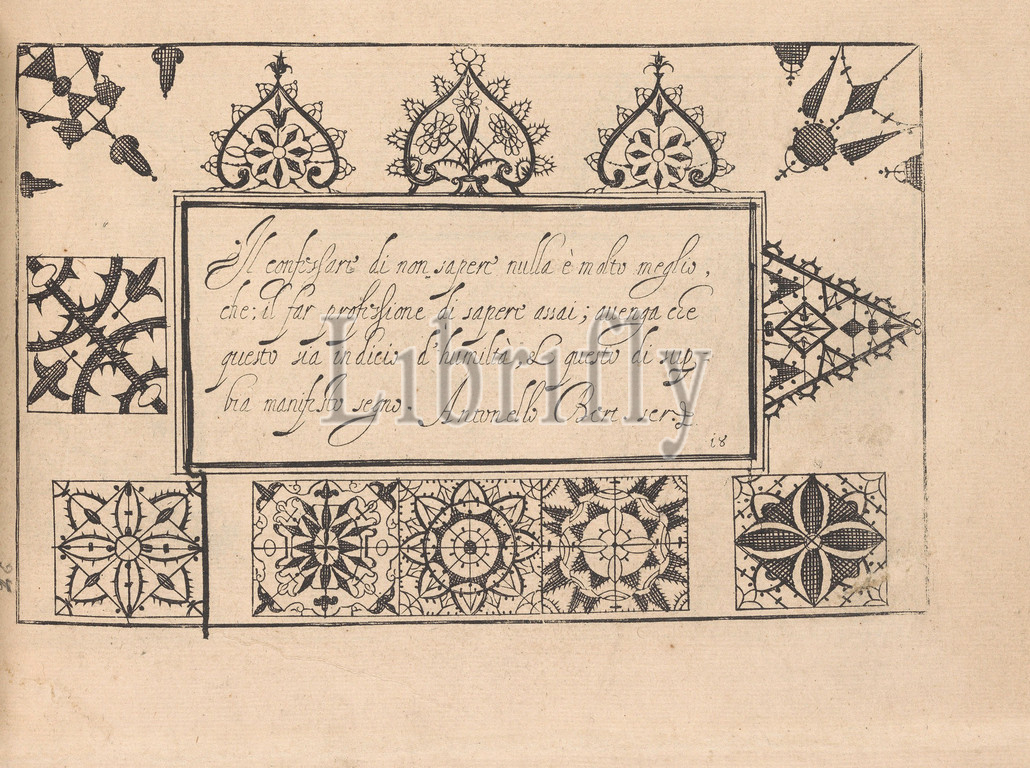 Il confessare di non sapere nulla è molto meglio,
che; il far professione di sapere assai; quenga che
questo sia indicio d'humiltà, & questo di sup=
bia manifesto segno. Antonello Bert ser.
18
Librifly
26